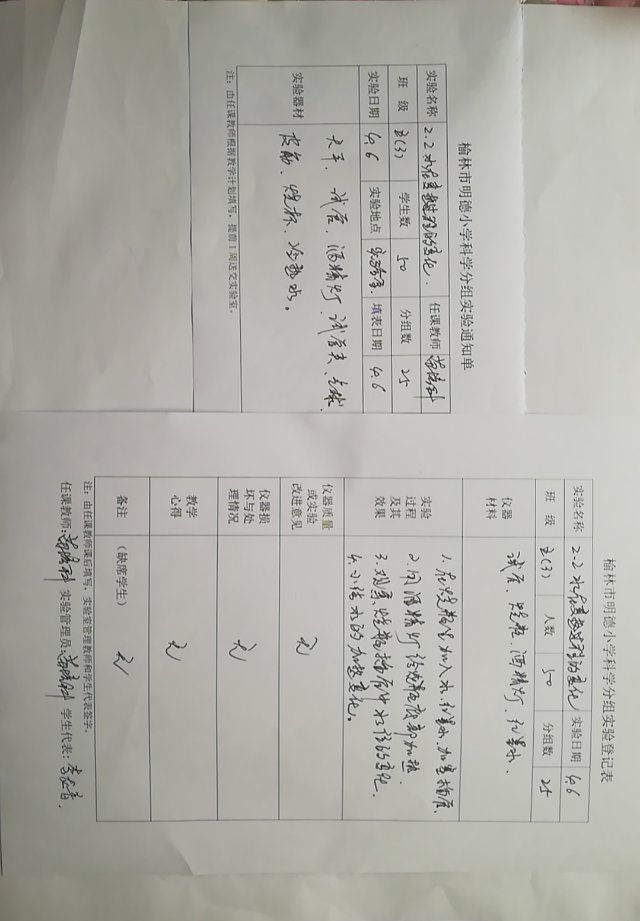 榆林市明德小学科学分组实验通知单
实验名称 2.2 水 的变化. 任课教师
班 级 三(3) 学生数 50 分组数 25
实验日期 4.6 实验地点 实验室. 填表日期 4.6
实验器材 天平、试管、酒精灯、试管夹、气球、
皮筋、烧杯、冷热水。
注：由任课教师根据教学计划填写，提前1周送交实验室。
榆林市明德小学科学分组实验登记表
实验名称 2-2 水 的变化 实验日期 4.6
班 级 三(3) 人数 50 分组数 25
仪器材料 试管、烧瓶、酒精灯、红墨水、
实验过程及其效果 1. 在烧瓶里加入水、红墨水、加塞插管.
2. 用酒精灯给烧瓶底部加热.
3. 观察、烧瓶插管中水位的变化.
4. 小结水的 变化。
仪器质量或实验改进意见 无
仪器损坏与处理情况 无
教学心得 无
备注 (缺席学生) 无
注：由任课教师课后填写，实验室管理教师和学生代表签字.
任课教师: 实验管理员: 学生代表: